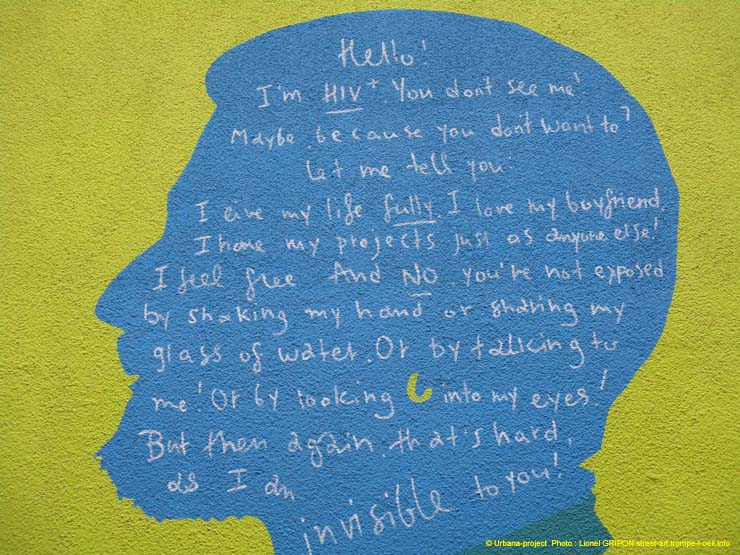 Hello!
I'm HIV+. You don't see me!
Maybe because you don't want to?
Let me tell you:
I live my life fully. I love my boyfriend.
I have my projects just as anyone else!
I feel free And NO. you're not exposed
by shaking my hand or sharing my
glass of water. Or by talking to
me! Or by looking into my eyes!
But then again. that's hard,
as I am
invisible to you!
© Urbana-project Photo : Lionel GRIPON street-art.trompe-l-oeil.info